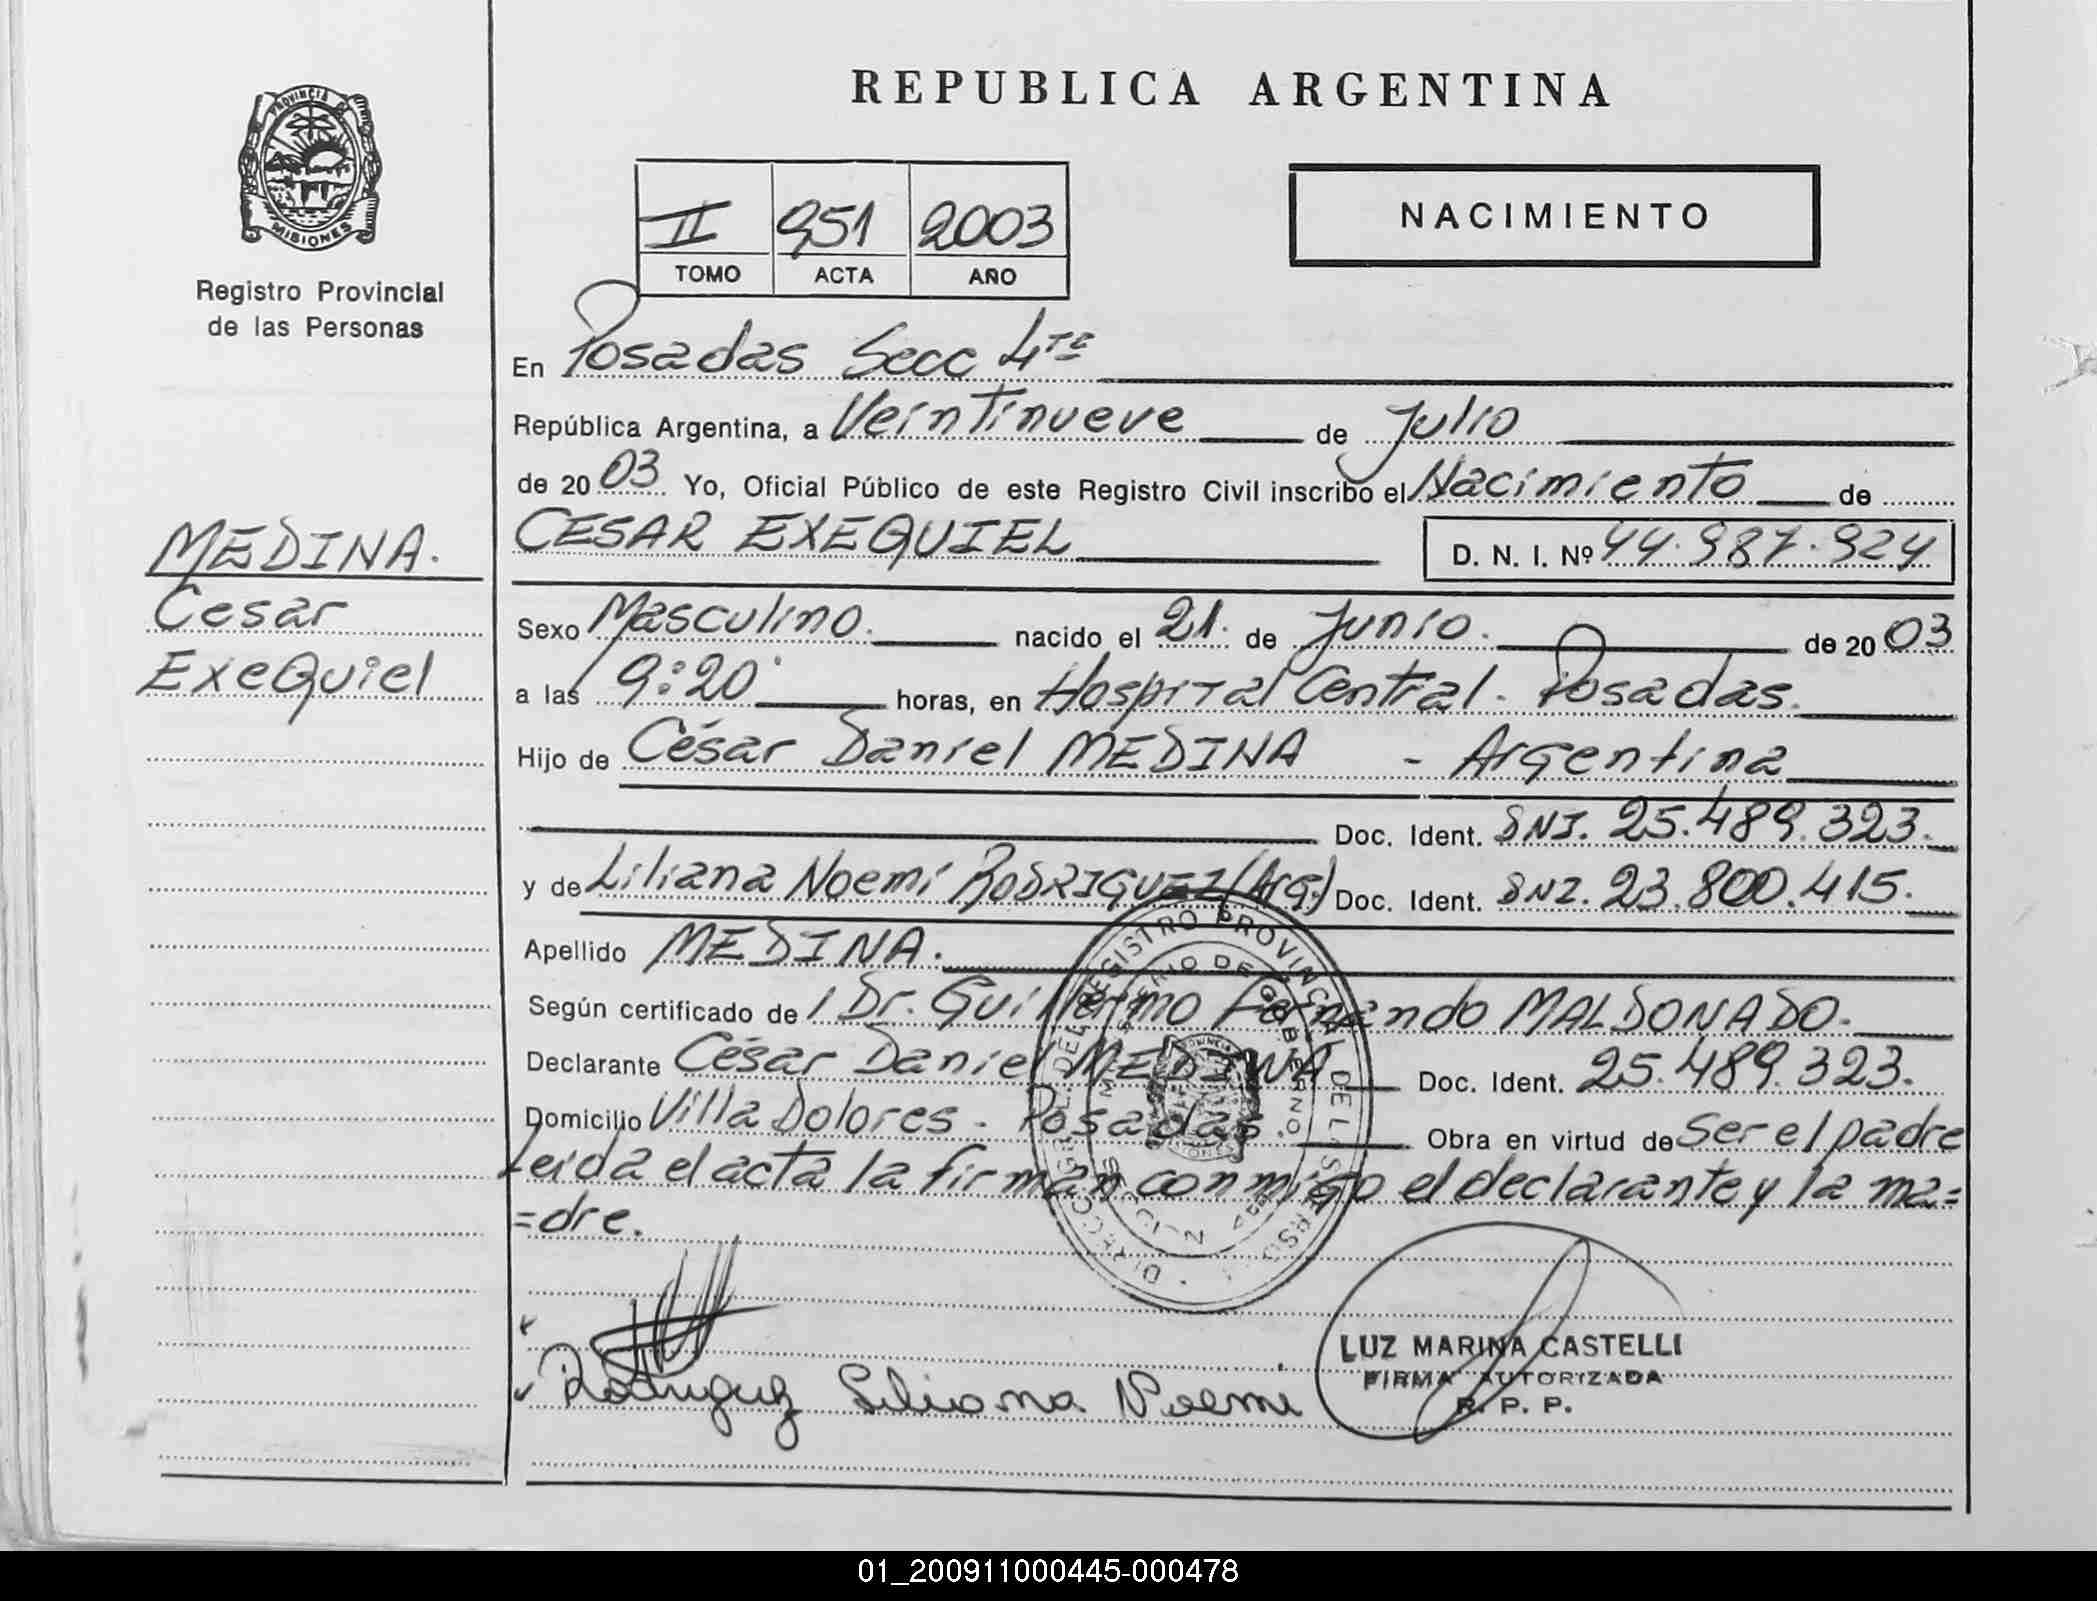 REPUBLICA ARGENTINA
PROVINCIA DE
MISIONES
Registro Provincial
de las Personas
II 951 2003
TOMO ACTA AÑO
NACIMIENTO
MEDINA.
Cesar
ExeQuiel
En Posadas Secc 4ta
República Argentina, a Veintinueve de Julio
de 2003 Yo, Oficial Público de este Registro Civil inscribo el Nacimiento de
CESAR EXEQUIEL D. N. I. Nº 44.987.924
Sexo Masculino. nacido el 21. de Junio. de 2003
a las 9:20 horas, en Hospital Central. Posadas.
Hijo de César Daniel MEDINA - Argentina
Doc. Ident. DNI. 25.489.323.
y de Liliana Noemí RODRIGUEZ (Arg.) Doc. Ident. DNI. 23.800.415.
Apellido MEDINA.
Según certificado de / Dr. Guillermo Fernando MALDONADO.
Declarante César Daniel MEDINA Doc. Ident. 25.489.323.
Domicilio Villa Dolores - Posadas. Obra en virtud de Ser el padre
Leída el acta la firman conmigo el declarante y la ma=
=dre.
Rodriguez Liliana Noemi
LUZ MARINA CASTELLI
FIRMA AUTORIZADA
R. P. P.
01_200911000445-000478